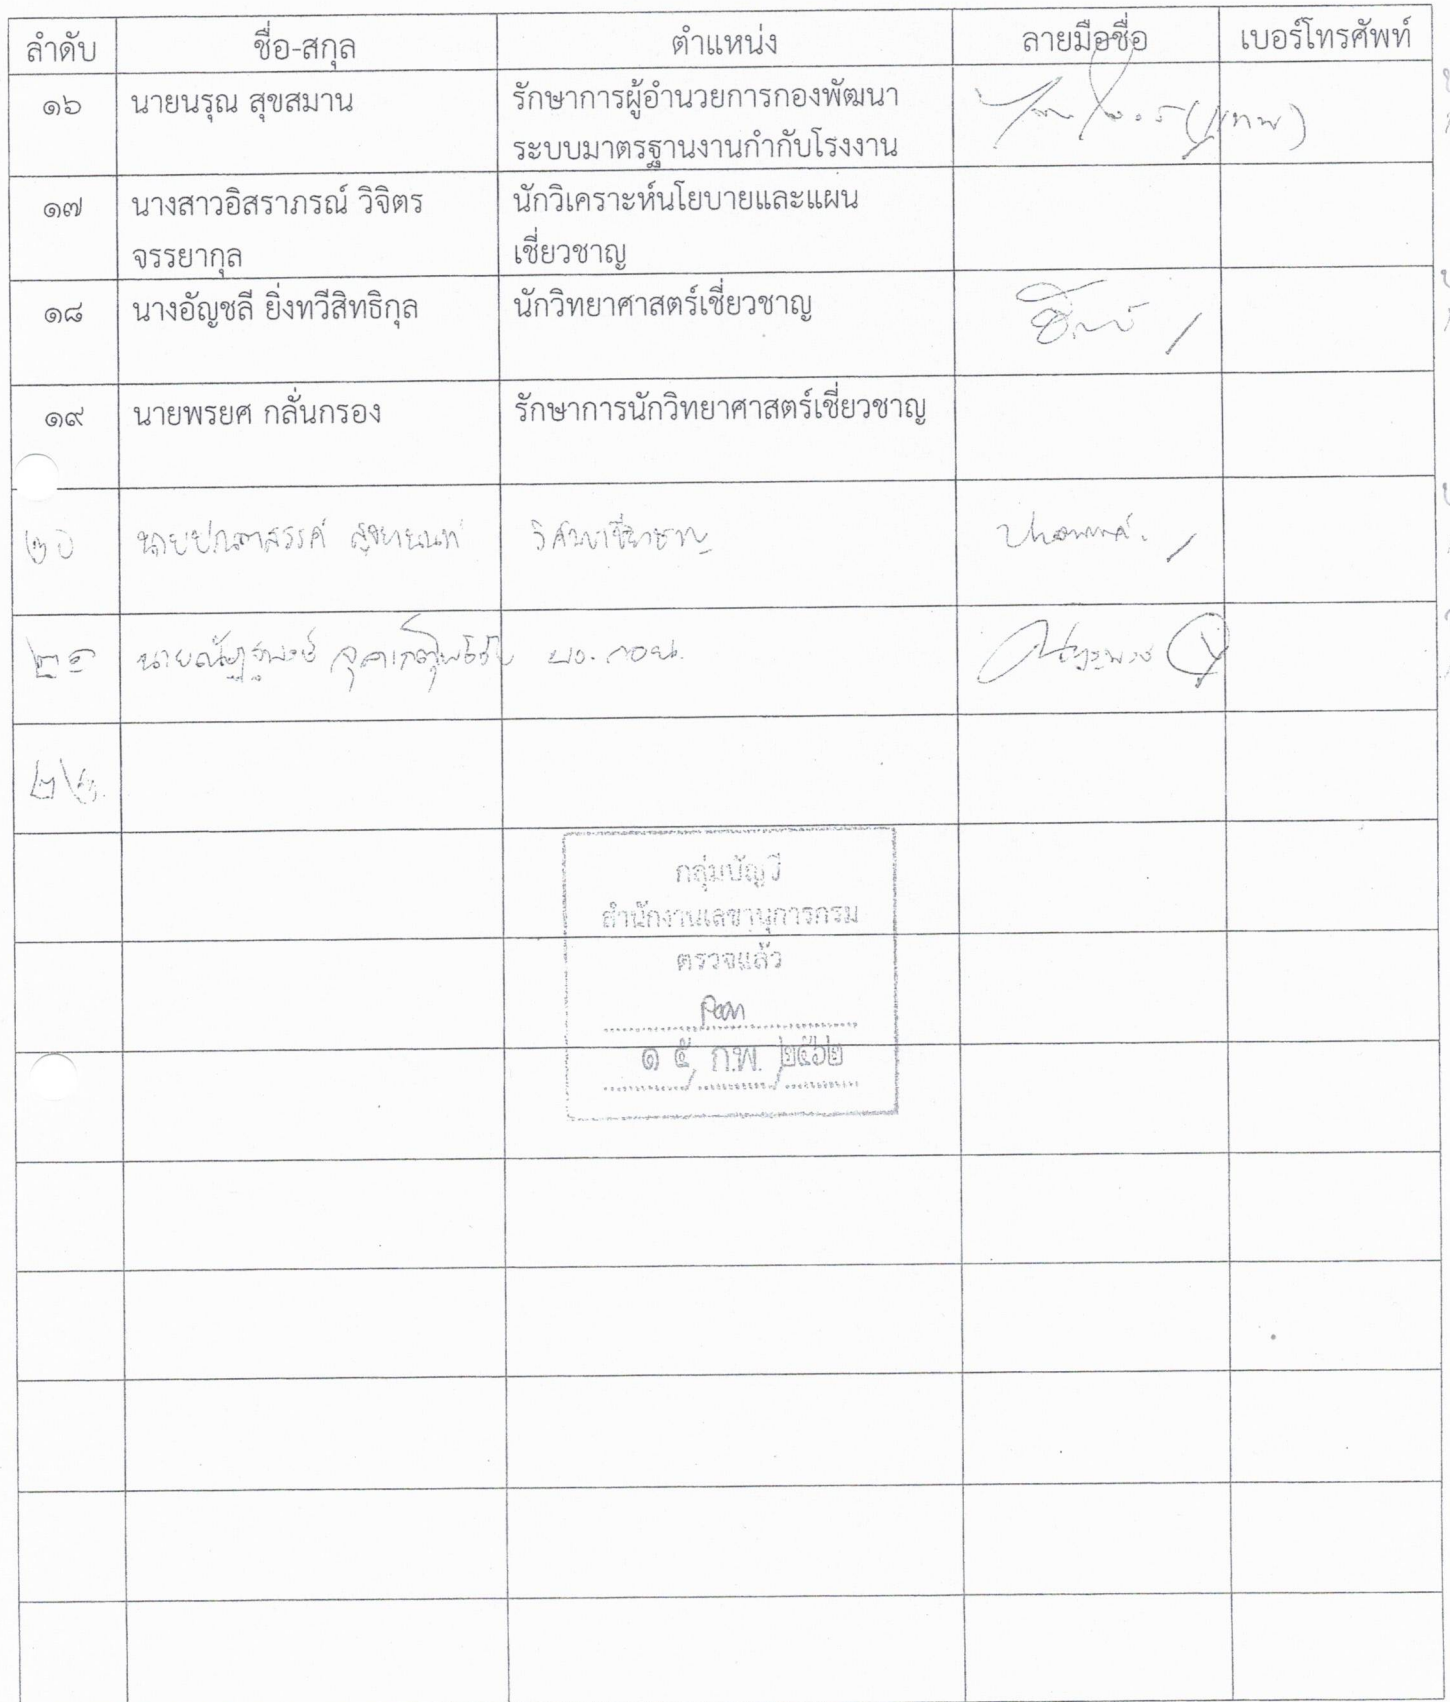 ลำดับ ชื่อ-สกุล ตำแหน่ง ลายมือชื่อ เบอร์โทรศัพท์
๑๖ นายนรุณ สุขสมาน รักษาการผู้อำนวยการกองพัฒนา
ระบบมาตรฐานงานกำกับโรงงาน
(แทน)
๑๗ นางสาวอิสราภรณ์ วิจิตร นักวิเคราะห์นโยบายและแผน
จรรยากุล เชี่ยวชาญ
๑๘ นางอัญชลี ยิ่งทวีสิทธิกุล นักวิทยาศาสตร์เชี่ยวชาญ
๑๙ นายพรยศ กลั่นกรอง รักษาการนักวิทยาศาสตร์เชี่ยวชาญ
๒๐ วิศวกรเชี่ยวชาญ
๒๑
๒๒.
กลุ่มบัญชี
สำนักงานเลขานุการกรม
ตรวจแล้ว
๑ ๕ ก.พ. ๒๕๖๒